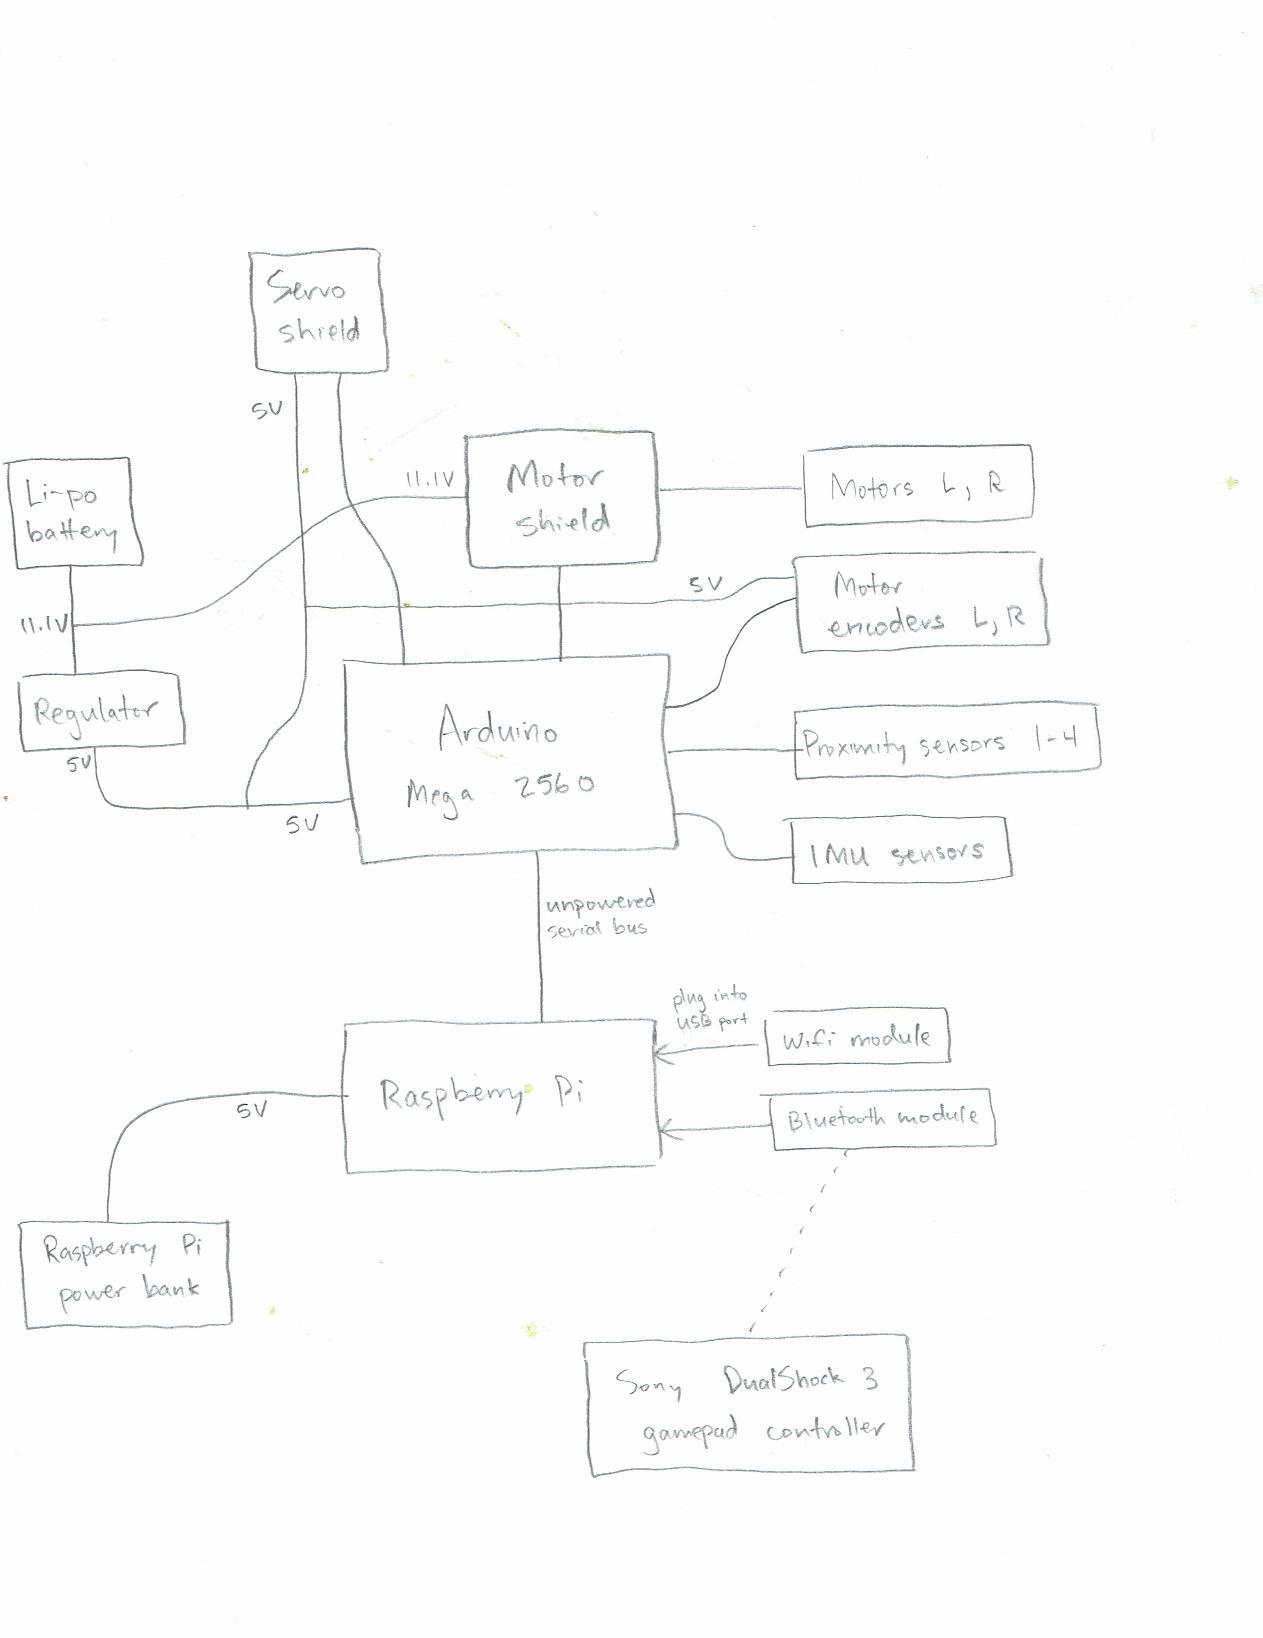 Servo
shield
5V
11.1V
Motor
shield
Motors L, R
Li-po
battery
5V
Motor
encoders L, R
11.1V
Regulator
5V
5V
Arduino
Mega 2560
Proximity sensors 1-4
IMU sensors
unpowered
serial bus
plug into
USB port
Wifi module
Raspberry Pi
Bluetooth module
5V
Raspberry Pi
power bank
Sony DualShock 3
gamepad controller